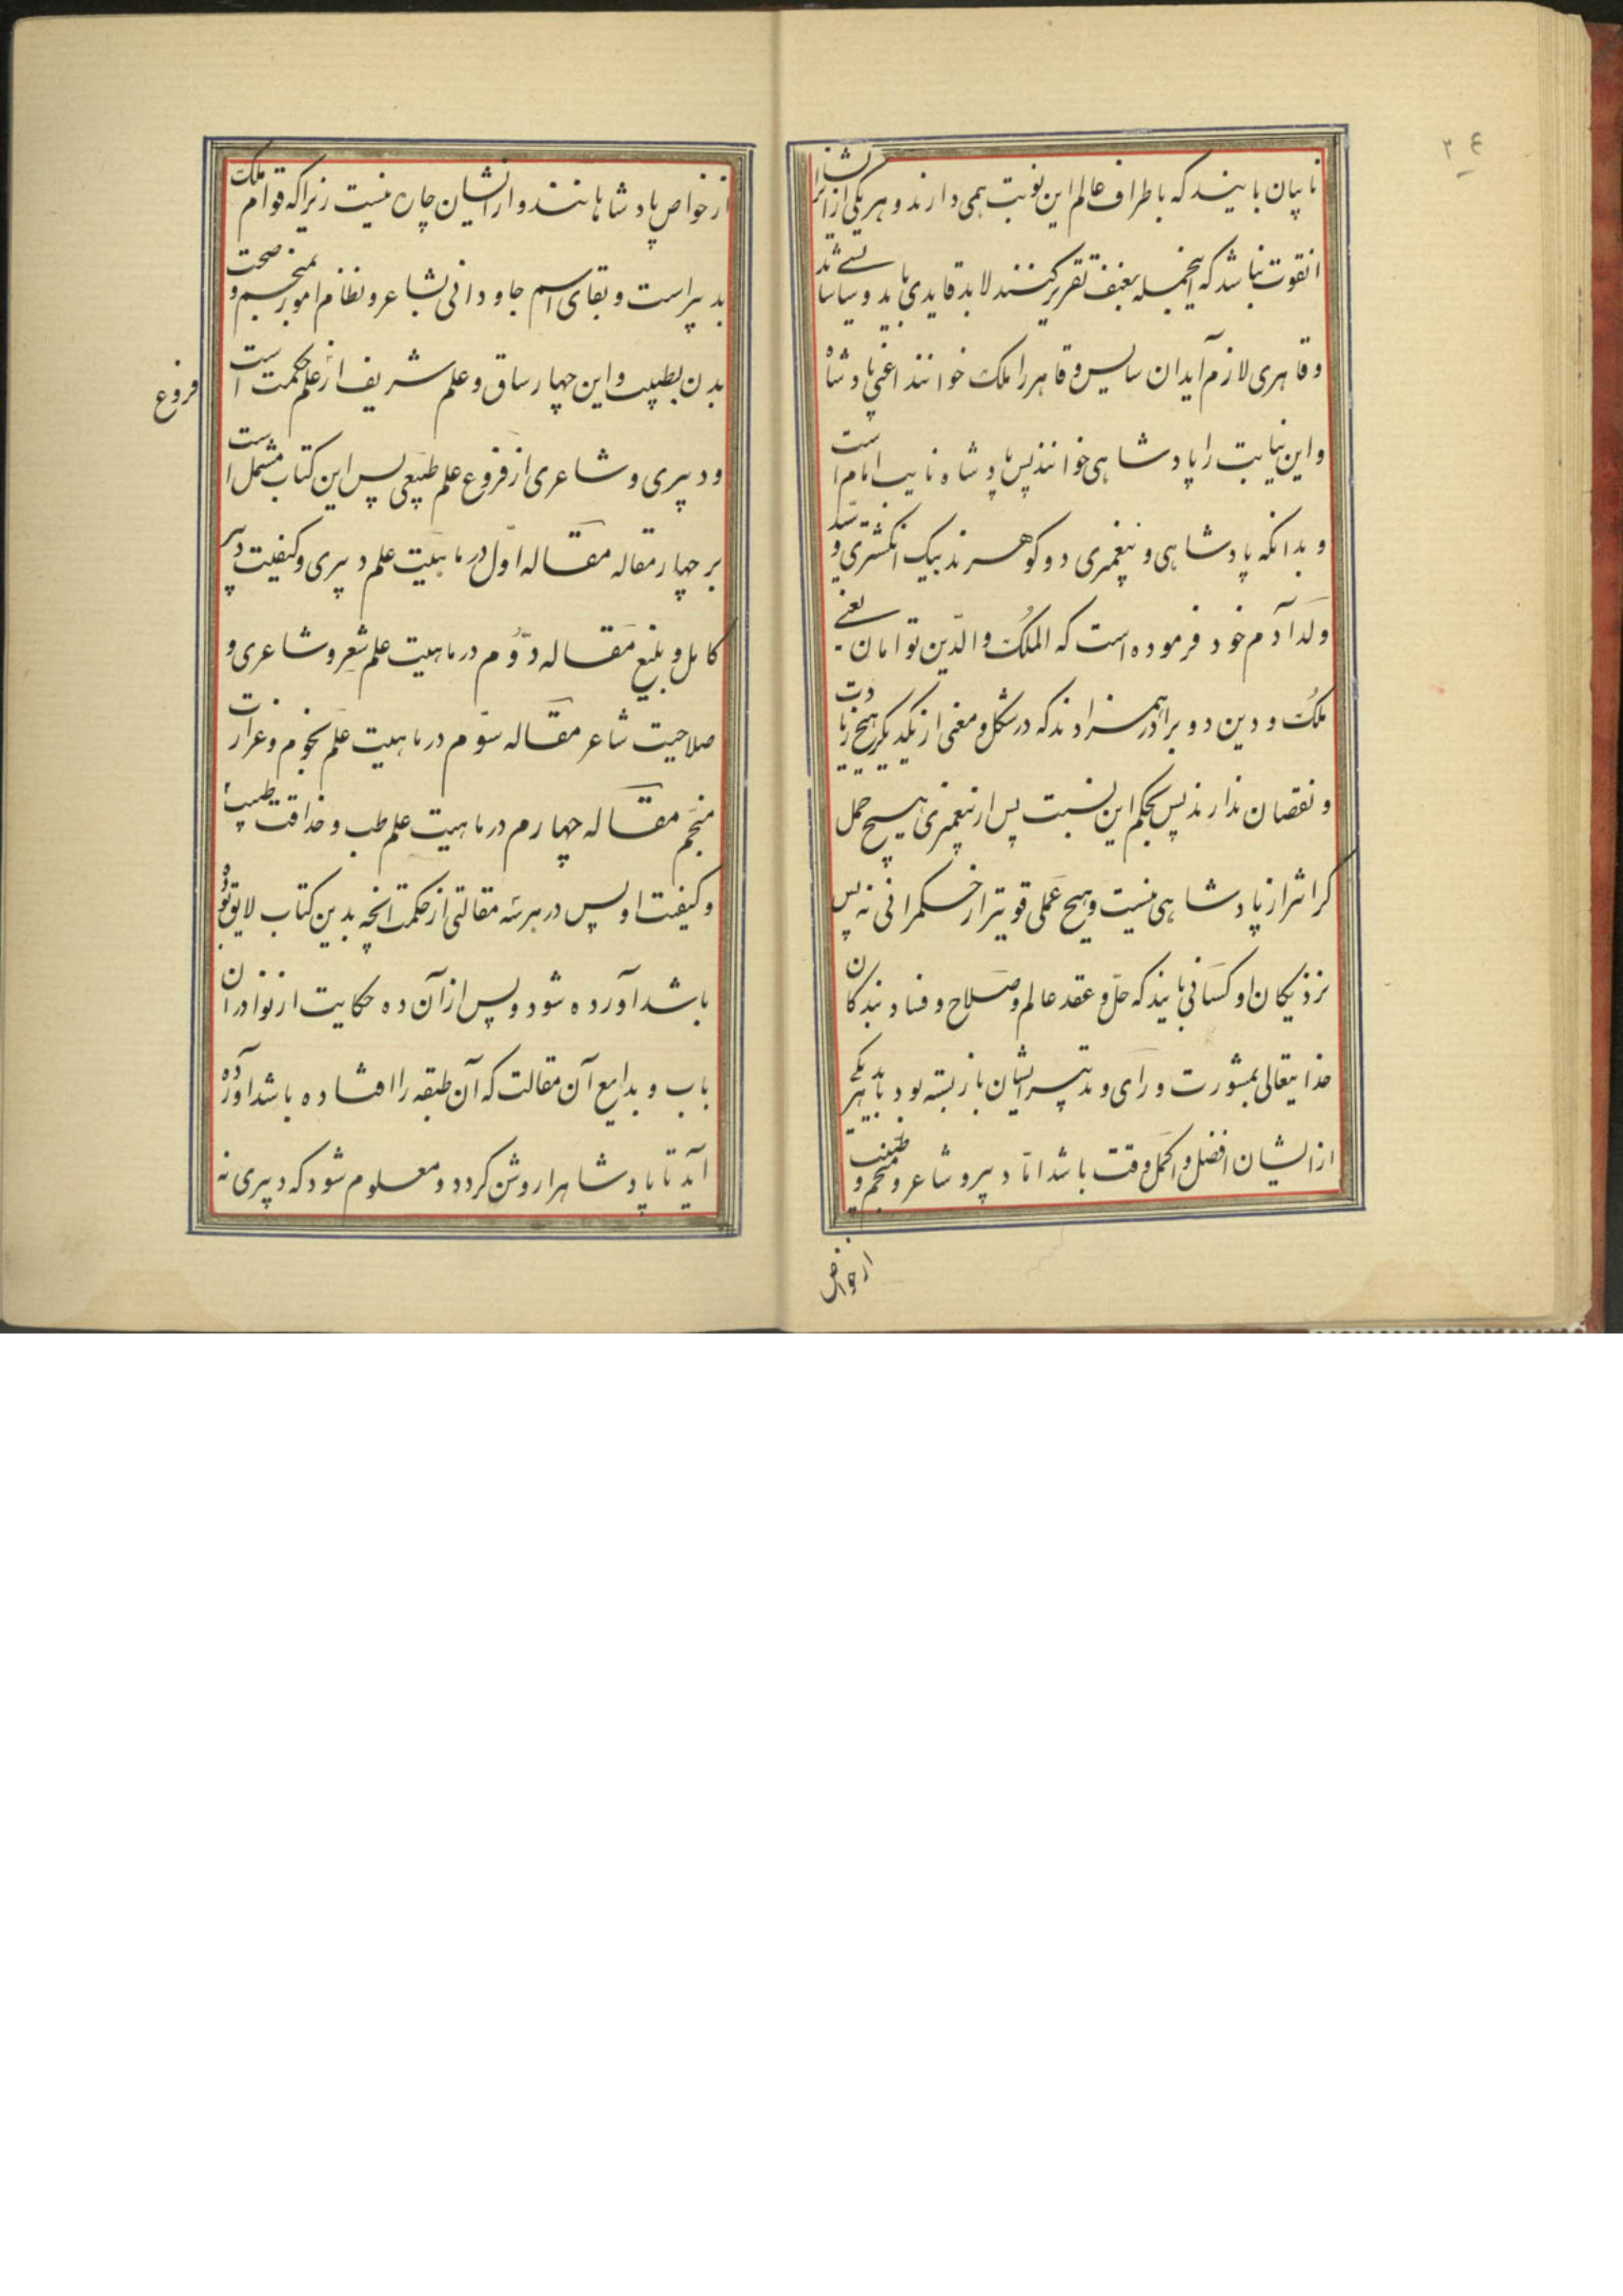 نایبان بایند که باطراف عالم این نوبت همی دارند و هر یکی از ایشانرا
انقوت نباشد که اینجمله بعنف تقریر کنند لابد قایدی باید و سیاسا یسی شد
و قاهری لازم آید ان سایس و قاهر را ملک خوانند اعنی پادشاه
و این نیابت را پادشاهی خوانند پس پادشاه نایب امام است
و بدانکه پادشاهی و پیغمبری دو کوهرند بیک انکشتری و سید
ولد آدم خود فرموده است که الملک و الدّین توامان یعنی
ملک و دین دو برادر همزادند که در شکل و معنی از یکدیکر هیچ زیادت
و نقصان ندارند پس بحکم این نسبت پس از پیغمبری هیچ حمل
کرانتر از پادشاهی نیست و هیچ عملی قویتر از حکمرانی نه پس
نزدیکان او کسانی بایند که حلّ و عقد عالم و صلاح و فساد بندکان
خدایتعالی بمشورت و رای و تدبیر ایشان باز بسته بود باید هر یکی
از ایشان افضل و اکمل وقت باشد امّا دبیر و شاعر و منجم و طبیب
از خواص
از خواص پادشاهانند و از ایشان چاره نیست زیرا که قوام ملک
بدبیر است و بقای اسم جاودانی بشاعر و نظام امور بمنجم و صحت
بدن بطبیب و این چهار ساق و علم شریف از علم حکمت است
فروع
و دبیری و شاعری از فروع علم طبیعی پس این کتاب مشتمل است
بر چهار مقاله مقاله اوّل در ماهیّت علم دبیری و کیفیت دبیر
کامل و بلیغ مقاله دوّم در ماهیت علم شعر و شاعری و
صلاحیت شاعر مقاله سوّم در ماهیت علم نجوم و غزارت
منجّم مقاله چهارم در ماهیت علم طب و حذاقت طبیب
و کیفیت او پس در هر سه مقالتی از حکمت آنچه بدین کتاب لایق بوده
باشد آورده شود و پس از آن ده حکایت از نوادر ان
باب و بدایع آن مقالت که آن طبقه را افتاده باشد آورده
آید تا پادشاهرا روشن کردد و معلوم شود که دبیری نه